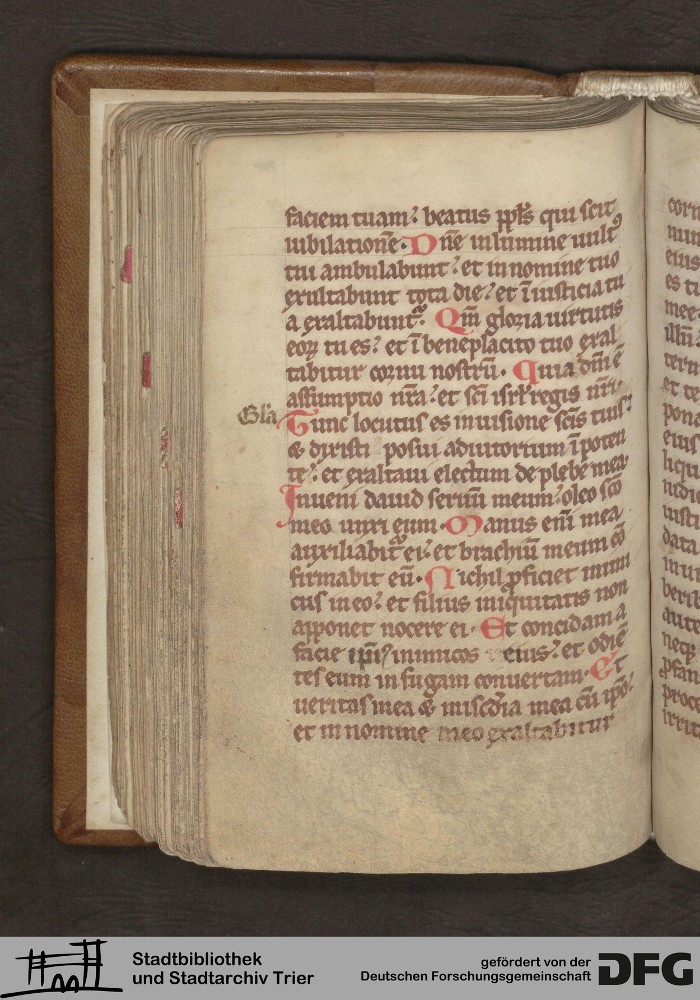 faciem tuam? beatus ppl̄s qui scit
iubilationē. Dn̄e in lumine uult9
tui ambulabunt? et in nomine tuo
exultabunt tota die? et ī iusticia tu
a exaltabunt᷑. Qm̄ gloria uirtutis
eoꝝ tu es? et ī beneplacito tuo exal
tabitur cornu nostrū. Quia dn̄i ē
assumptio nr̄a? et sc̄i isrl̄ regis nr̄i.
Gl̄a
Tunc locutus es in uisione sc̄is tuis?
& dixisti posui adiutorium ī poten
te? et exaltaui electum de plebe mea.
Inueni dauid seruū meum? oleo sc̄o
meo unxi eum. Manus eni̅ mea
auxiliabit᷑ ei? et brachiū meum cō
firmabit eū. Nichil ꝓficiet inimi
cus in eo? et filius iniquitatis non
apponet nocere ei. Et concidam a
facie ipi̅? inimicos eius? et odiē
tes eum in fugam conuertam. Et
ueritas mea & misc̄dia mea cū ip̄o?
et in nomine meo exaltabitur
corn
man
eius
es tu
mee
illū
tern
et te
pona
eius
liqu
iudi
iusti
data
mun
berib
aute
neqꝫ
ꝓfan
proce
irrit
Stadtbibliothek
und Stadtarchiv Trier
gefördert von der
Deutschen Forschungsgemeinschaft
DFG